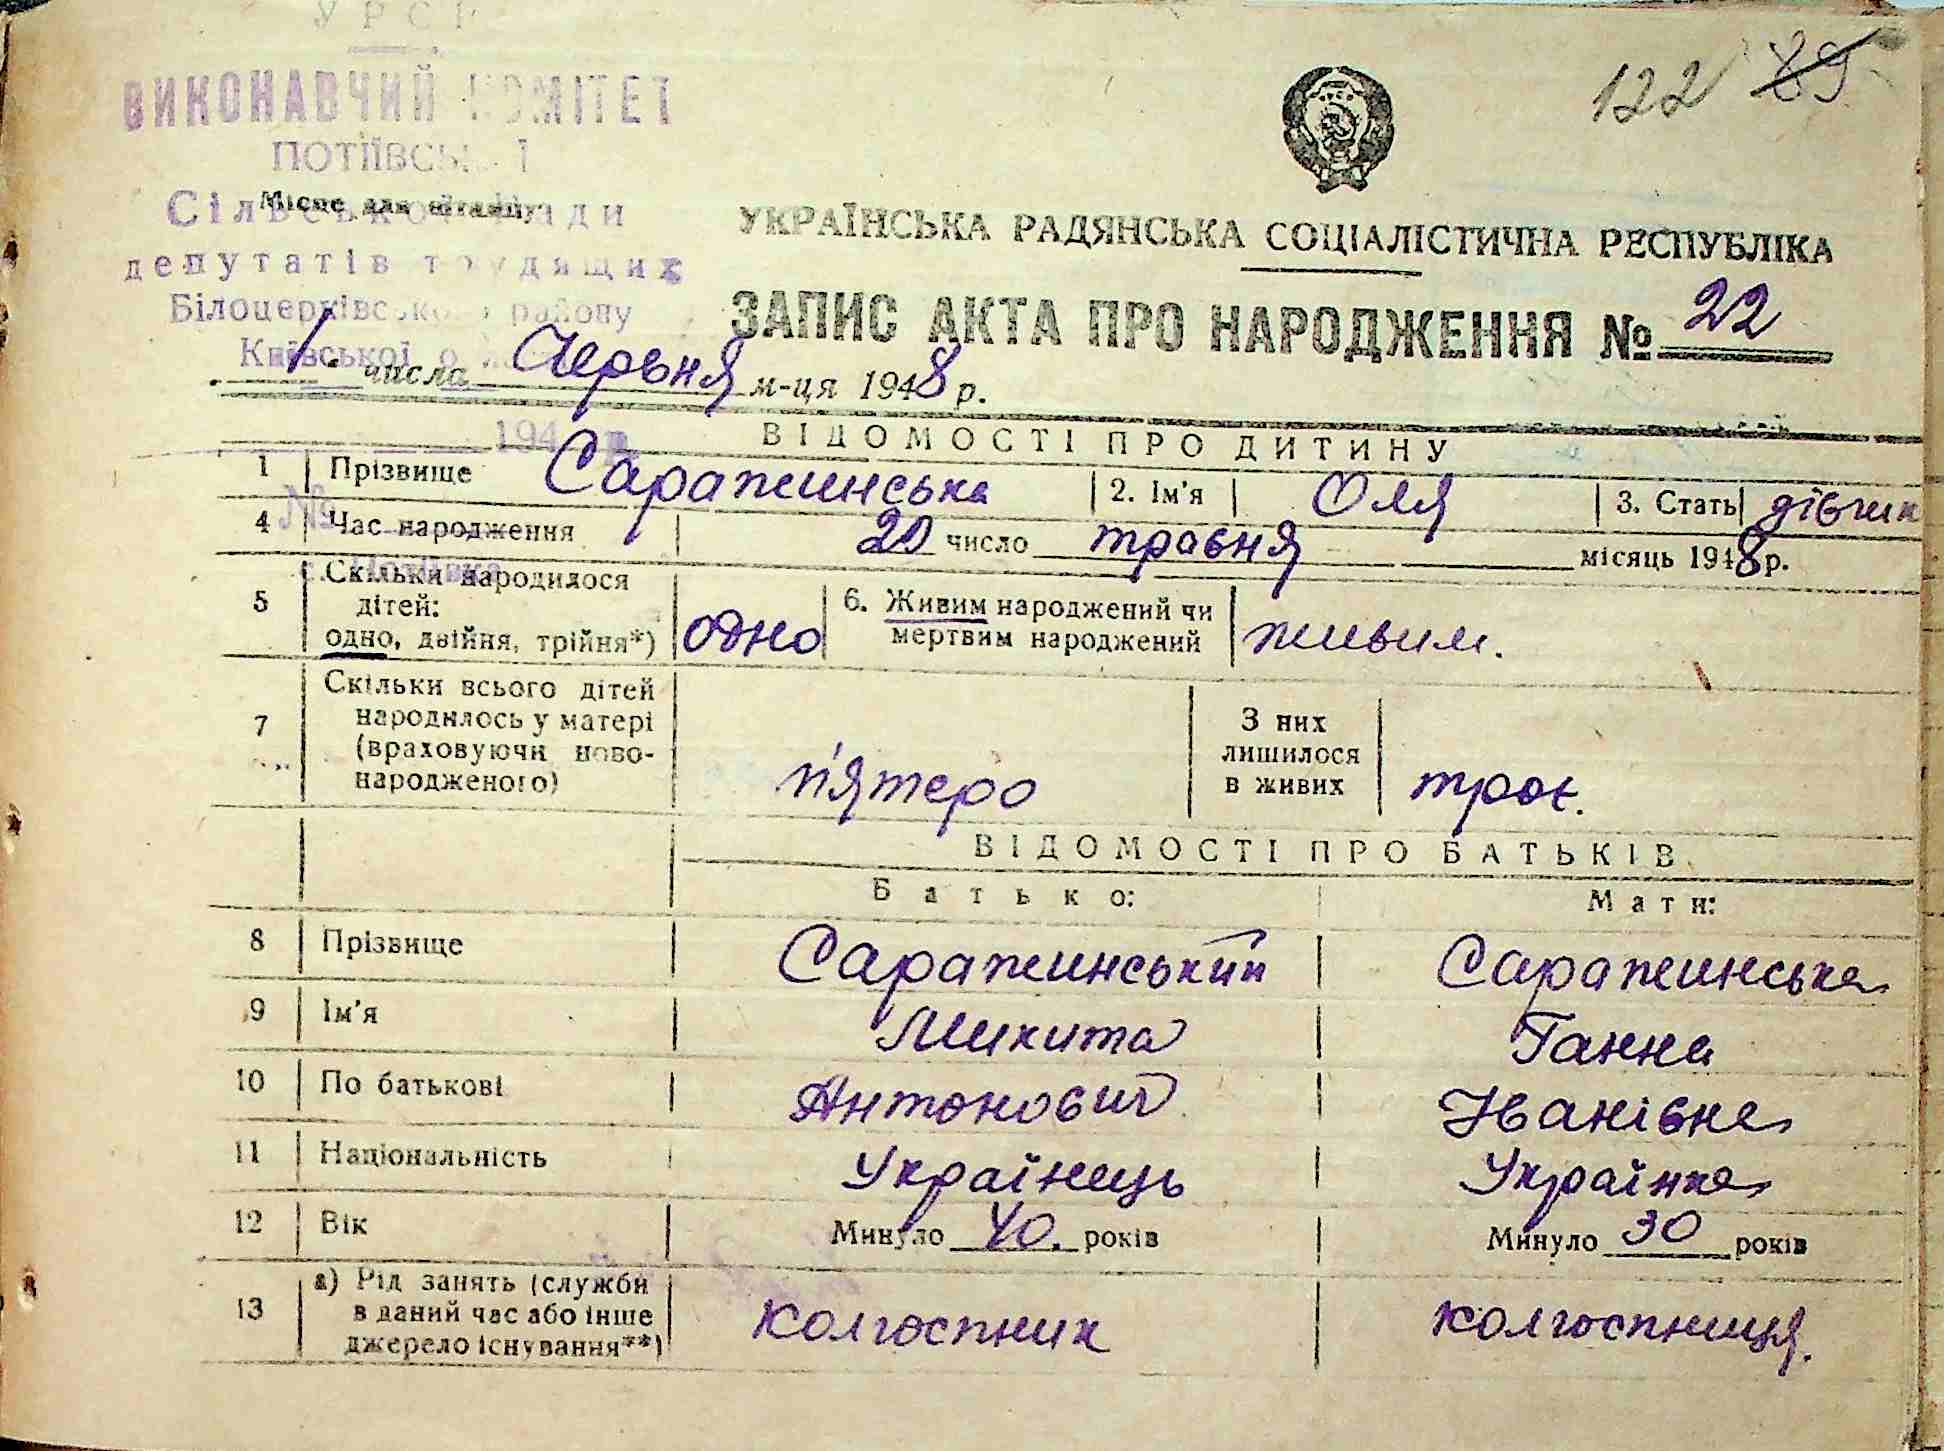 УРСР
ВИКОНАВЧИЙ КОМІТЕТ
ПОТІЇВСЬКОЇ
Місце для штампу
Сільської Ради
депутатів трудящих
Білоцерківського району
Київської
194
№
с. Потіївка
122 89
УКРАЇНСЬКА РАДЯНСЬКА СОЦІАЛІСТИЧНА РЕСПУБЛІКА
ЗАПИС АКТА ПРО НАРОДЖЕННЯ № 22
1 числа Червня м-ця 1948 р.
ВІДОМОСТІ ПРО ДИТИНУ
1 Прізвище Саражинська 2. Ім'я Оля 3. Стать дівчин
4 Час народження 20 число травня місяць 1948 р.
5 Скільки народилося дітей: одно, двійня, трійня*) одно 6. Живим народжений чи мертвим народжений живим.
7 Скільки всього дітей народилось у матері (враховуючи новонародженого) п'ятеро З них лишилося в живих троє.
ВІДОМОСТІ ПРО БАТЬКІВ
Батько: Мати:
8 Прізвище Саражинський Саражинська
9 Ім'я Микита Ганна
10 По батькові Антонович Іванівна
11 Національність Українець Українка
12 Вік Минуло 40. років Минуло 30 років
13 а) Рід занять (служби в даний час або інше джерело існування**) колгоспник колгоспниця.